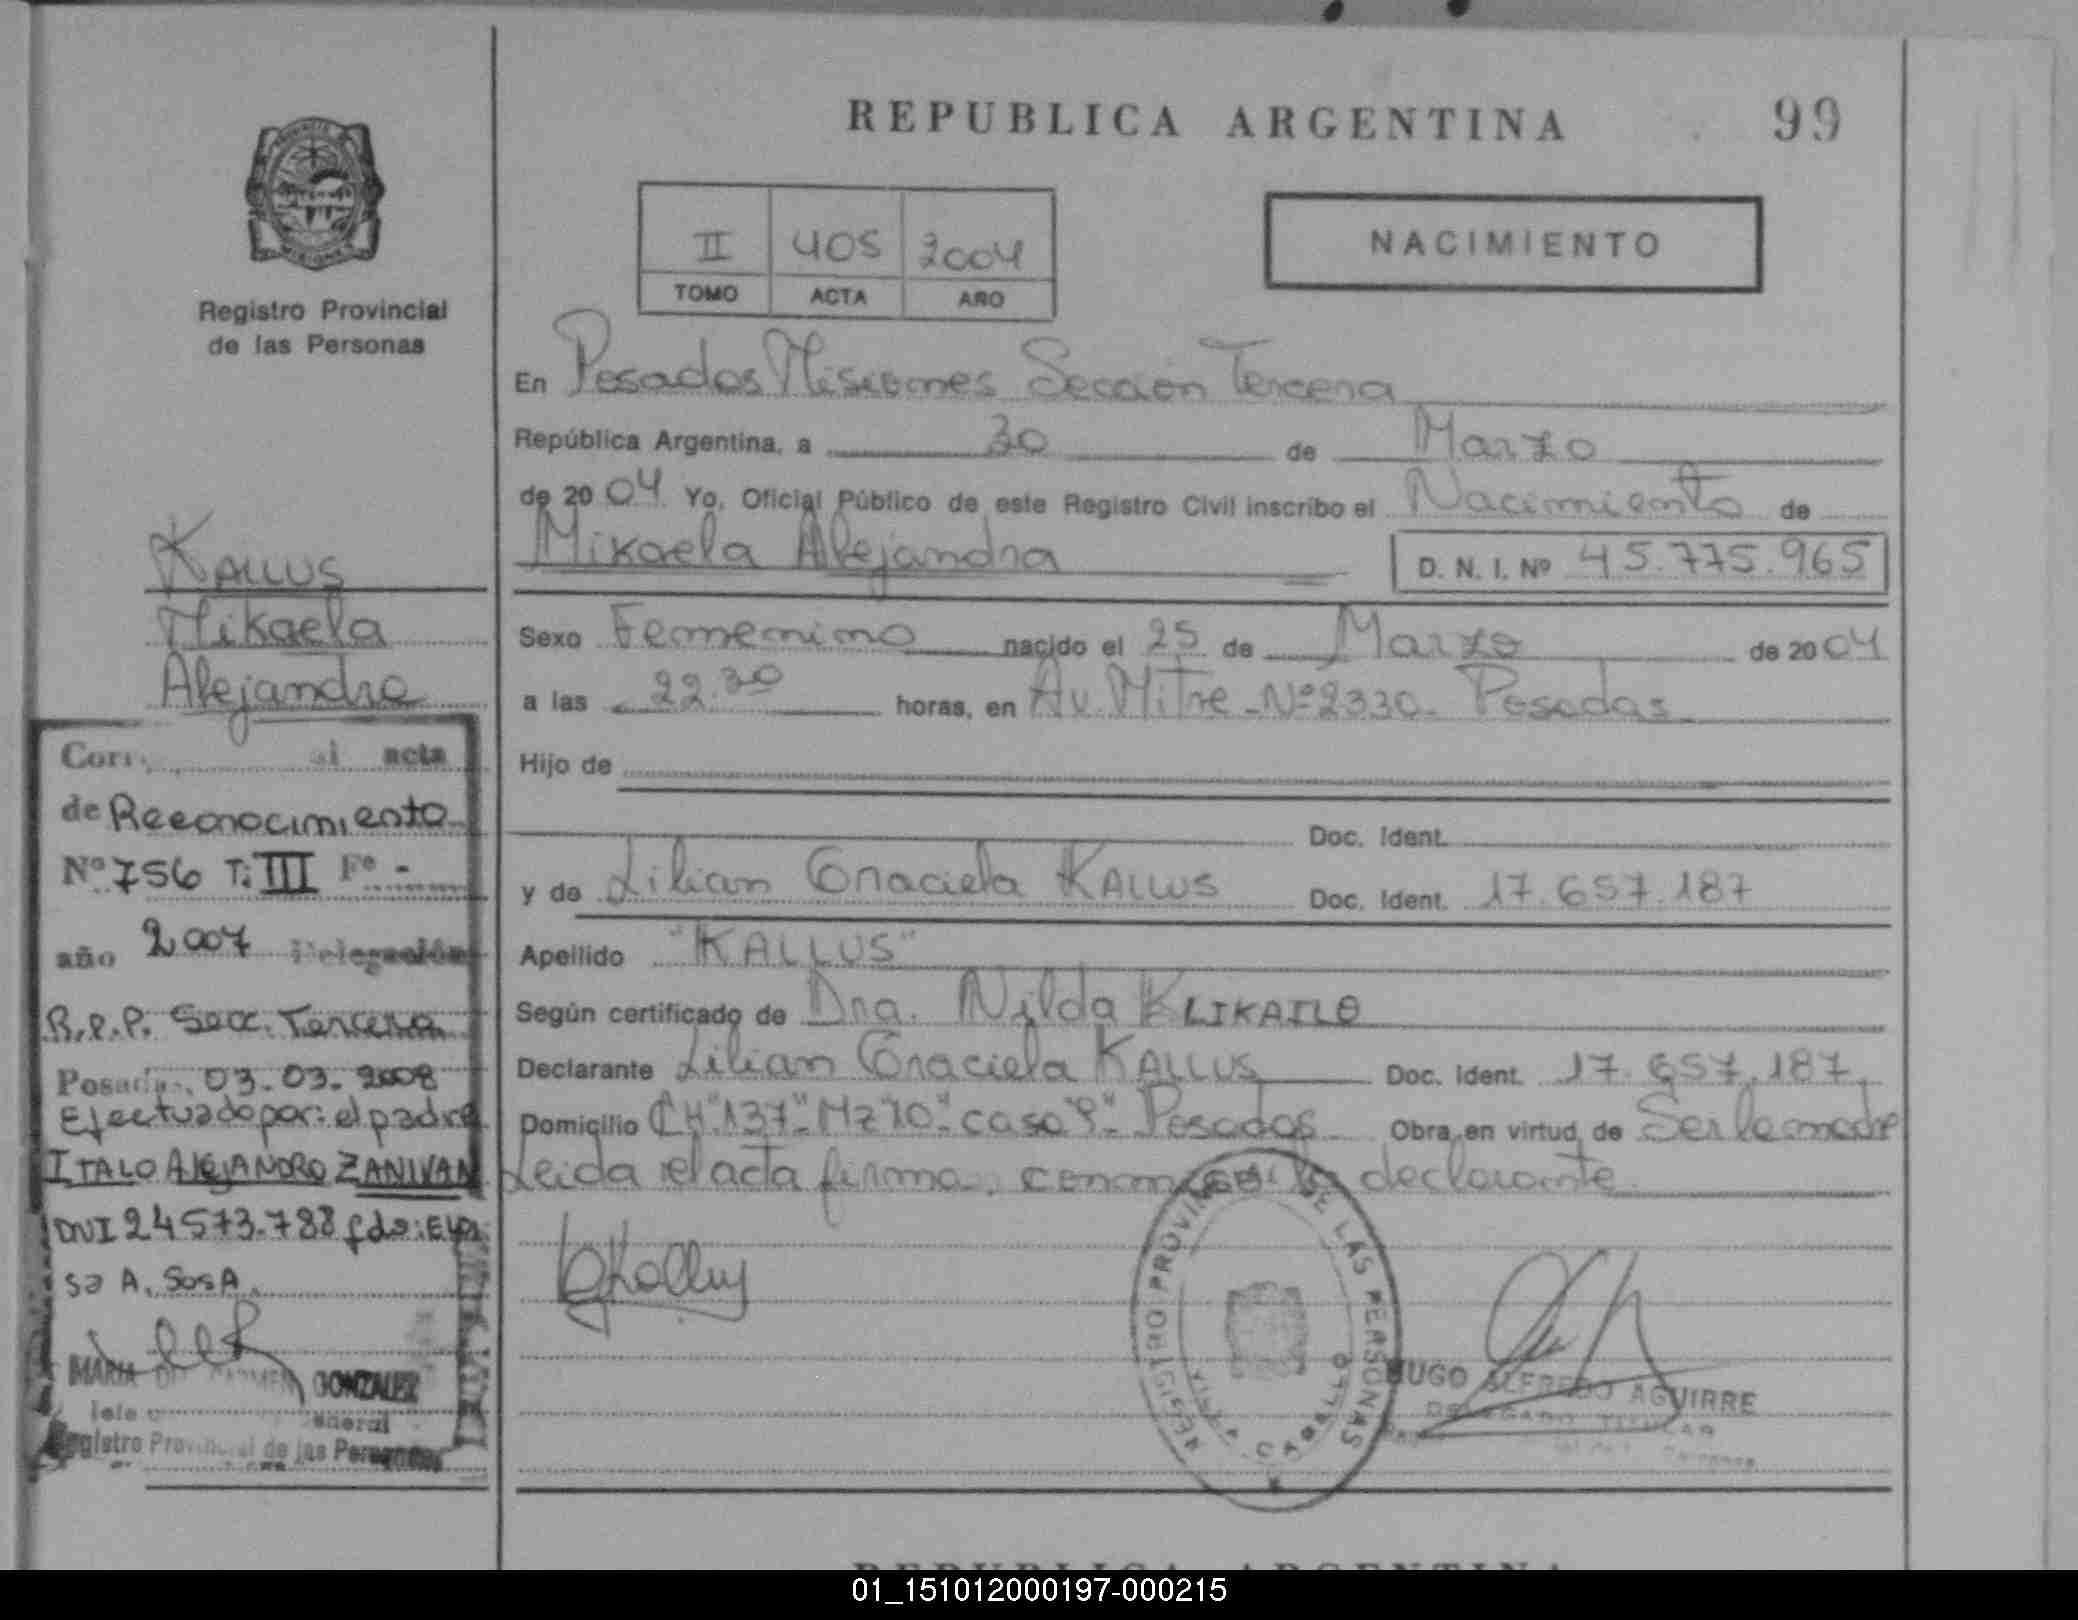 REPUBLICA ARGENTINA
99
II 405 2004
TOMO ACTA AÑO
NACIMIENTO
Registro Provincial
de las Personas
En Posadas Misiones Sección Tercera
República Argentina, a 30 de Marzo
de 2004 Yo, Oficial Público de este Registro Civil inscribo el Nacimiento de
Mikaela Alejandra
D. N. I. Nº 45.775.965
Sexo Femenino nacido el 25 de Marzo de 2004
a las 22.30 horas, en Av. Mitre - Nº 2330 - Posadas
Hijo de
Doc. Ident.
y de Lilian Graciela KALLUS Doc. Ident. 17.657.187
Apellido "KALLUS"
Según certificado de Dra. Nilda
Declarante Lilian Graciela KALLUS Doc. Ident. 17.657.187
Domicilio CH "137" - Mz "10" - casa "8" - Posadas Obra en virtud de Ser la madre
Leida el acta firma, conmigo la declarante
KALLUS
Mikaela
Alejandra
acta
de Reconocimiento
Nº 756 T: III Fº -
año 2007 Delegación
R.P.P. Secc. Tercera
Posadas, 03.03.2008
Efectuado por: el padre
ITALO ALEJANDRO ZANIVAN
DNI 24573.788 fdo: Eli
sa A. SOSA.
MARIA DEL CARMEN GONZALEZ
Registro Provincial de las Personas
REGISTRO PROVINCIAL DE LAS PERSONAS
HUGO ALFREDO AGUIRRE
DELEGADO TITULAR
REPUBLICA ARGENTINA
01_151012000197-000215